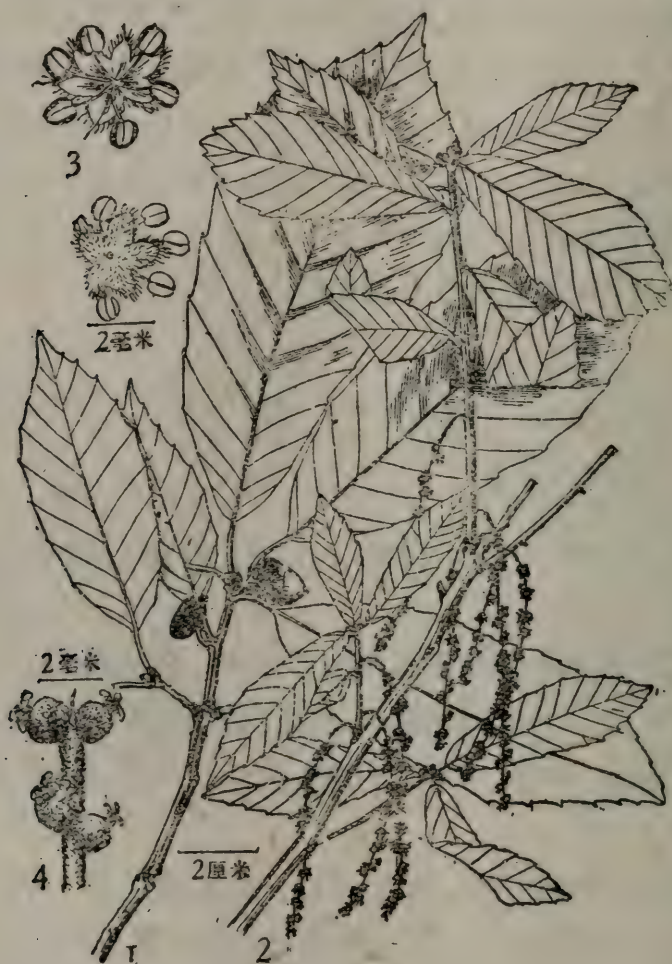 3
2毫米
2毫米
4
2厘米
1
2